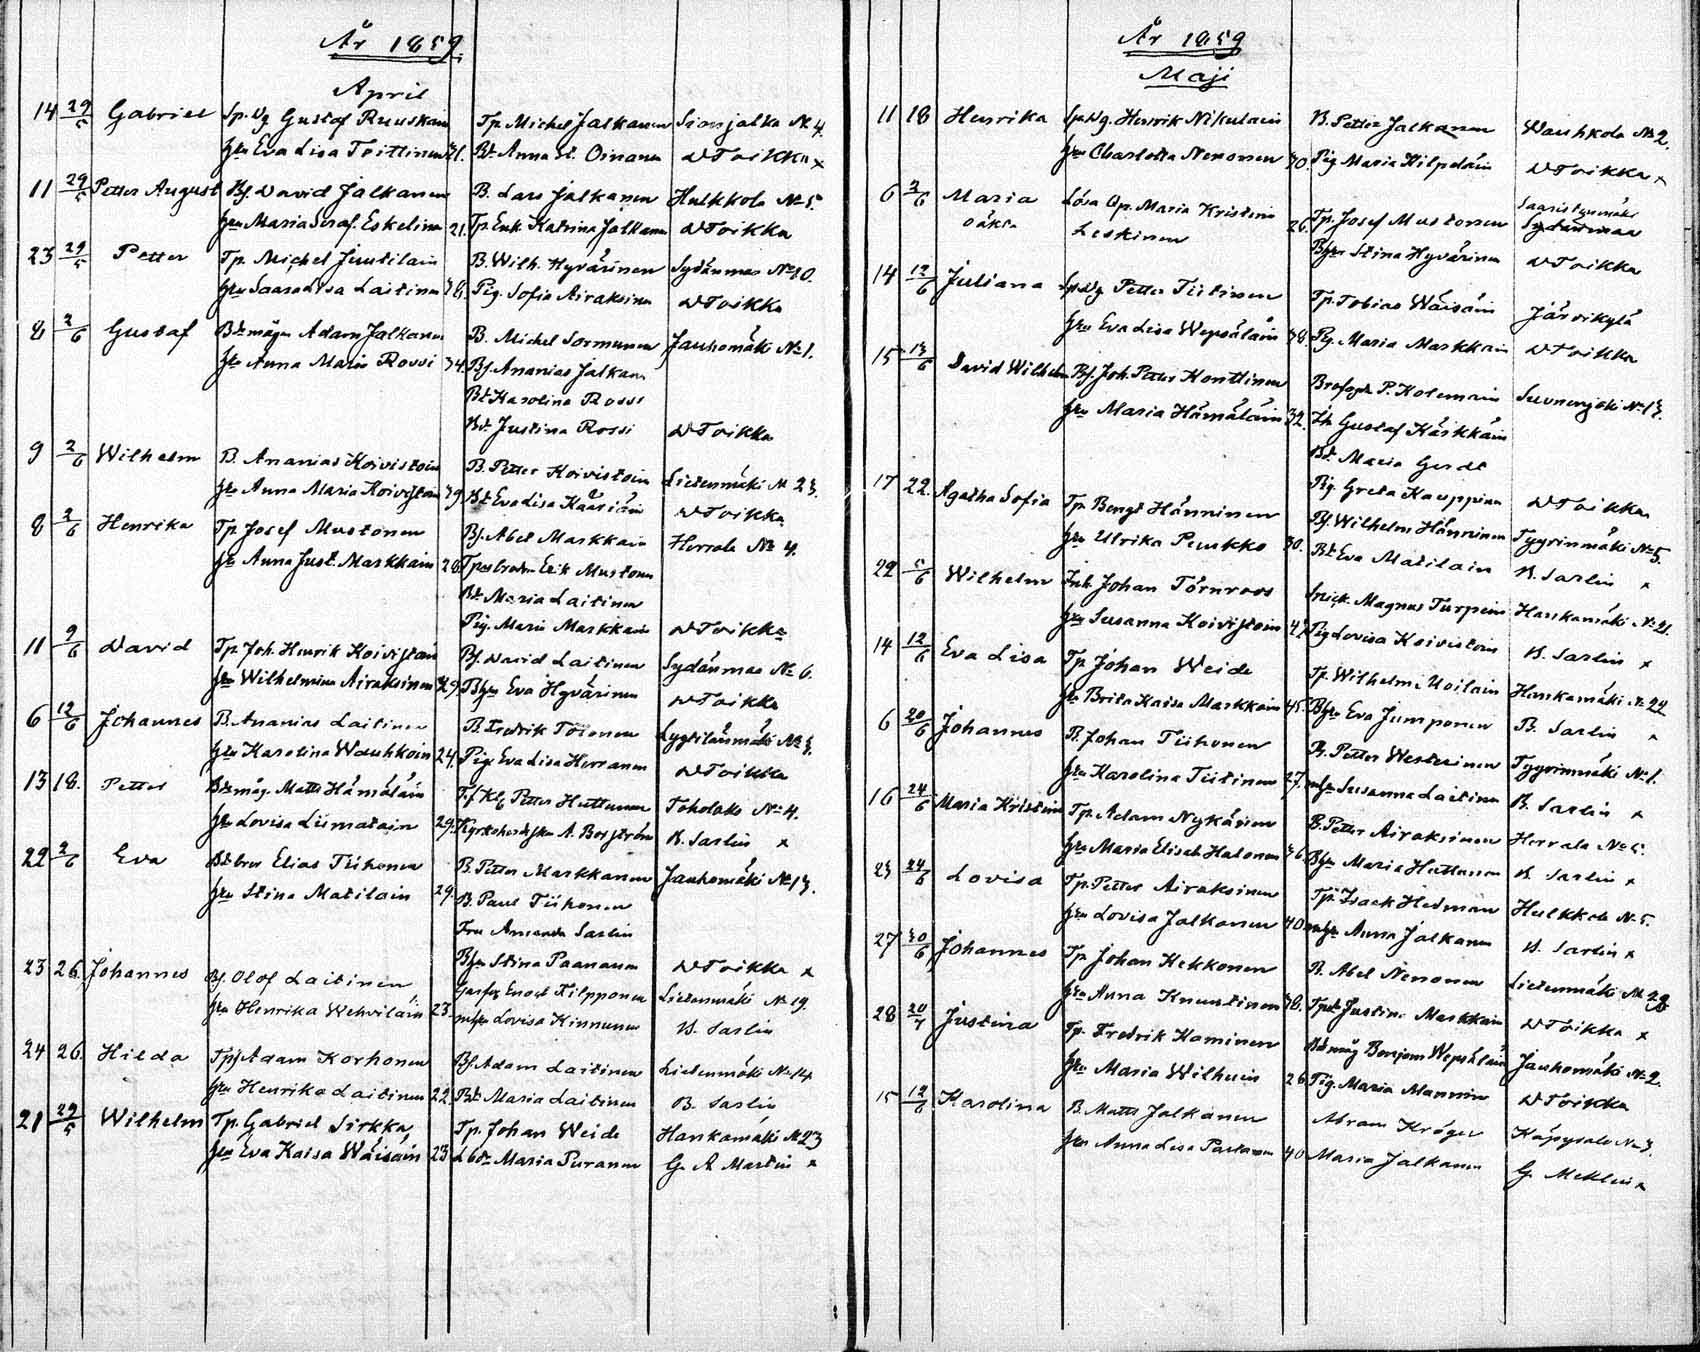 År 1859.
April
14 29/5 Gabriel Sp.Vg Gustaf Ruuskain Tp. Michel Jalkanen Sianjalka No 4.
hu Eva Lisa Toittinen 31. Bd. Anna El. Oinonen W Toikka x
11 29/5 Petter August Bf. David Jalkanen B. Lars Jalkanen Hulkkola No 5.
hu Maria Seraf. Eskelinen 21. Tp. Enk. Katrina Jalkanen W Toikka
23 29/5 Petter Tp. Michel Juutilain B. Wilh. Hyvärinen Sydänmaa No 10.
hu Saara Lisa Laitinen 38. Pig. Sofia Airaksinen W Toikka
8 2/6 Gustaf Bd måg Adam Jalkanen B. Michel Sormunen Jauhomäki No 1.
hu Anna Maria Rossi 34. Bf. Ananias Jalkanen
Bd Karolina Rossi
Bd. Justina Rossi W Toikka
9 2/6 Wilhelm B. Ananias Koivistoin B. Petter Koivistoin Lietenmäki No 23.
hu Anna Maria Koivistoin 39. Bd. Eva Lisa Kääriäin W Toikka
8 2/6 Henrika Tp. Josef Mustonen Bf. Abel Markkain Herrala No 4.
hu Anna Just. Markkain 28. Tps broder Erik Mustonen
Bd. Maria Laitinen
Pig. Maria Markkain W Toikka
11 9/6 David Tp. Joh. Henrik Koivistoin Bf. David Laitinen Sydänmaa No 6.
hu Wilhelmina Airaksinen 29. Bhu Eva Hyvärinen W Toikka
6 12/6 Johannes B. Ananias Laitinen B. Fredrik Toronen No 3.
hu Karolina Wauhkoin 24. Pig. Eva Lisa Herranen W Toikka
13 18. Petter Bds måg. Matts Hämäläin Petter Huttunen Toholaks No 4.
hu Lovisa Liimatain 29. A. Borgström K. Sarlin x
22 2/6 Eva Bd. bror Elias Tiihonen B. Petter Markkanen Jauhomäki No 13.
hu Stina Matilain 29. B. Paul Tiihonen
Fru Amanda Sarlin
Bhu Stina Paananen W Toikka x
23 26. Johannes Bf. Olof Laitinen Enock Filpponen Lietenmäki No 19.
hu Henrika Wehviläin 23. Lovisa Kinnunen K. Sarlin
24 26 Hilda Tpf Adam Korhonen Bf. Adam Laitinen Lietenmäki No 14
hu Henrika Laitinen 22. Bd. Maria Laitinen B. Sarlin
21 29/5 Wilhelm Tp. Gabriel Sirkka Tp. Johan Weide Hankamäki No 23
hu Eva Kaisa Wäisäin 23 Maria Puranen G. A Martin x
År 1859
Maji
11 18 Henrika Sp.Vg. Henrik Nikulain B. Petter Jalkanen Wauhkola No 2.
hu Charlotta Nenonen 30. Pig Maria Kilpeläin W Toikka x
6 2/6 Maria Lösa Qp. Maria Kristina Tp. Josef Mustonen Saaristenmäki
oäkta Leskinen 26. Bhu Stina Hyvärinen W Toikka
14 12/6 Juliana Sp.Vg Petter Tiitinen Tp. Tobias Wäisäin Järvikylä
hu Eva Lisa Wepsäläin 38. Pig. Maria Markkain W Toikka
15 13/6 David Wilhelm Bf. Joh. Petter Konttinen P. Kolemain Suvnenjoki No 13.
hu Maria Hämäläin 32. Gustaf Kärkkäin
Bd. Maria Gerdt
Pig. Greta Kauppinen W Toikka
17 22. Agatha Sofia Tp. Bengt Hänninen Bf. Wilhelm Hänninen Tyyrinmäki No 5.
hu Ulrika Puukko 30. Bd. Eva Matilain K. Sarlin x
22 5/6 Wilhelm Inh. Johan Törnroos Snick. Magnus Turpein Hankamäki No 21.
hu Susanna Koivistoin 42 Pig Lovisa Koivistoin K. Sarlin x
14 12/6 Eva Lisa Tp. Johan Weide Tp. Wilhelm Hankamäki No 24
hu Brita Kaisa Markkain 45. Bhu Eva Jumponen B. Sarlin x
6 20/6 Johannes B. Johan Tiihonen B. Petter Westerinen Tyyrinmäki No 1.
hu Karolina Tiitinen 27. Susanna Laitinen K. Sarlin x
16 24/6 Maria Kristina Tp. Adam Nykänen B. Petter Airaksinen Herrala No 5.
hu Maria Elisab. Halonen 36. Bhu Maria Huttunen K. Sarlin x
23 24/6 Lovisa Tp. Petter Airaksinen Tp. Isack Hedman Hulkkola No 5.
hu Lovisa Jalkanen 40 Anna Jalkanen K. Sarlin x
27 30/6 Johannes Tp. Johan Hekkonen B. Abel Nenonen Lietenmäki No 28
hu Anna Knuutinen 38. Tpd. Justina Markkain W Toikka x
28 20/7 Justina Tp. Fredrik Kaminen Bds måg Benjam Wepsäläin Jauhomäki No 2.
hu Maria Wilhuin 26 Pig. Maria Mannin W Toikka
15 12/6 Karolina B. Matts Jalkanen Abram Kröger Käpysalo No 3.
hu Anna Lisa Partanen 40 Maria Jalkanen G. Meklin x